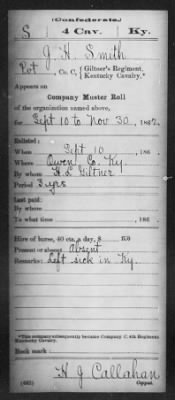 (Confederate.)
S 4 Cav. Ky.
J. H. Smith
Pvt, Co. C, Giltner's Regiment, Kentucky Cavalry.*
Appears on
Company Muster Roll
of the organization named above,
for Sept 10 to Nov 30, 1862.
Enlisted:
When Sept 10, 186
Where Owen Co. Ky.
By whom H. L. Giltner
Period 3 yrs
Last paid:
By whom
To what time , 186
Hire of horse, 40 cts. a day, $ 100
Present or absent Absent
Remarks: Left sick in Ky.
*This company subsequently became Company C, 4th Regiment Kentucky Cavalry.
Book mark:
H J Callahan
(642) Copyist.